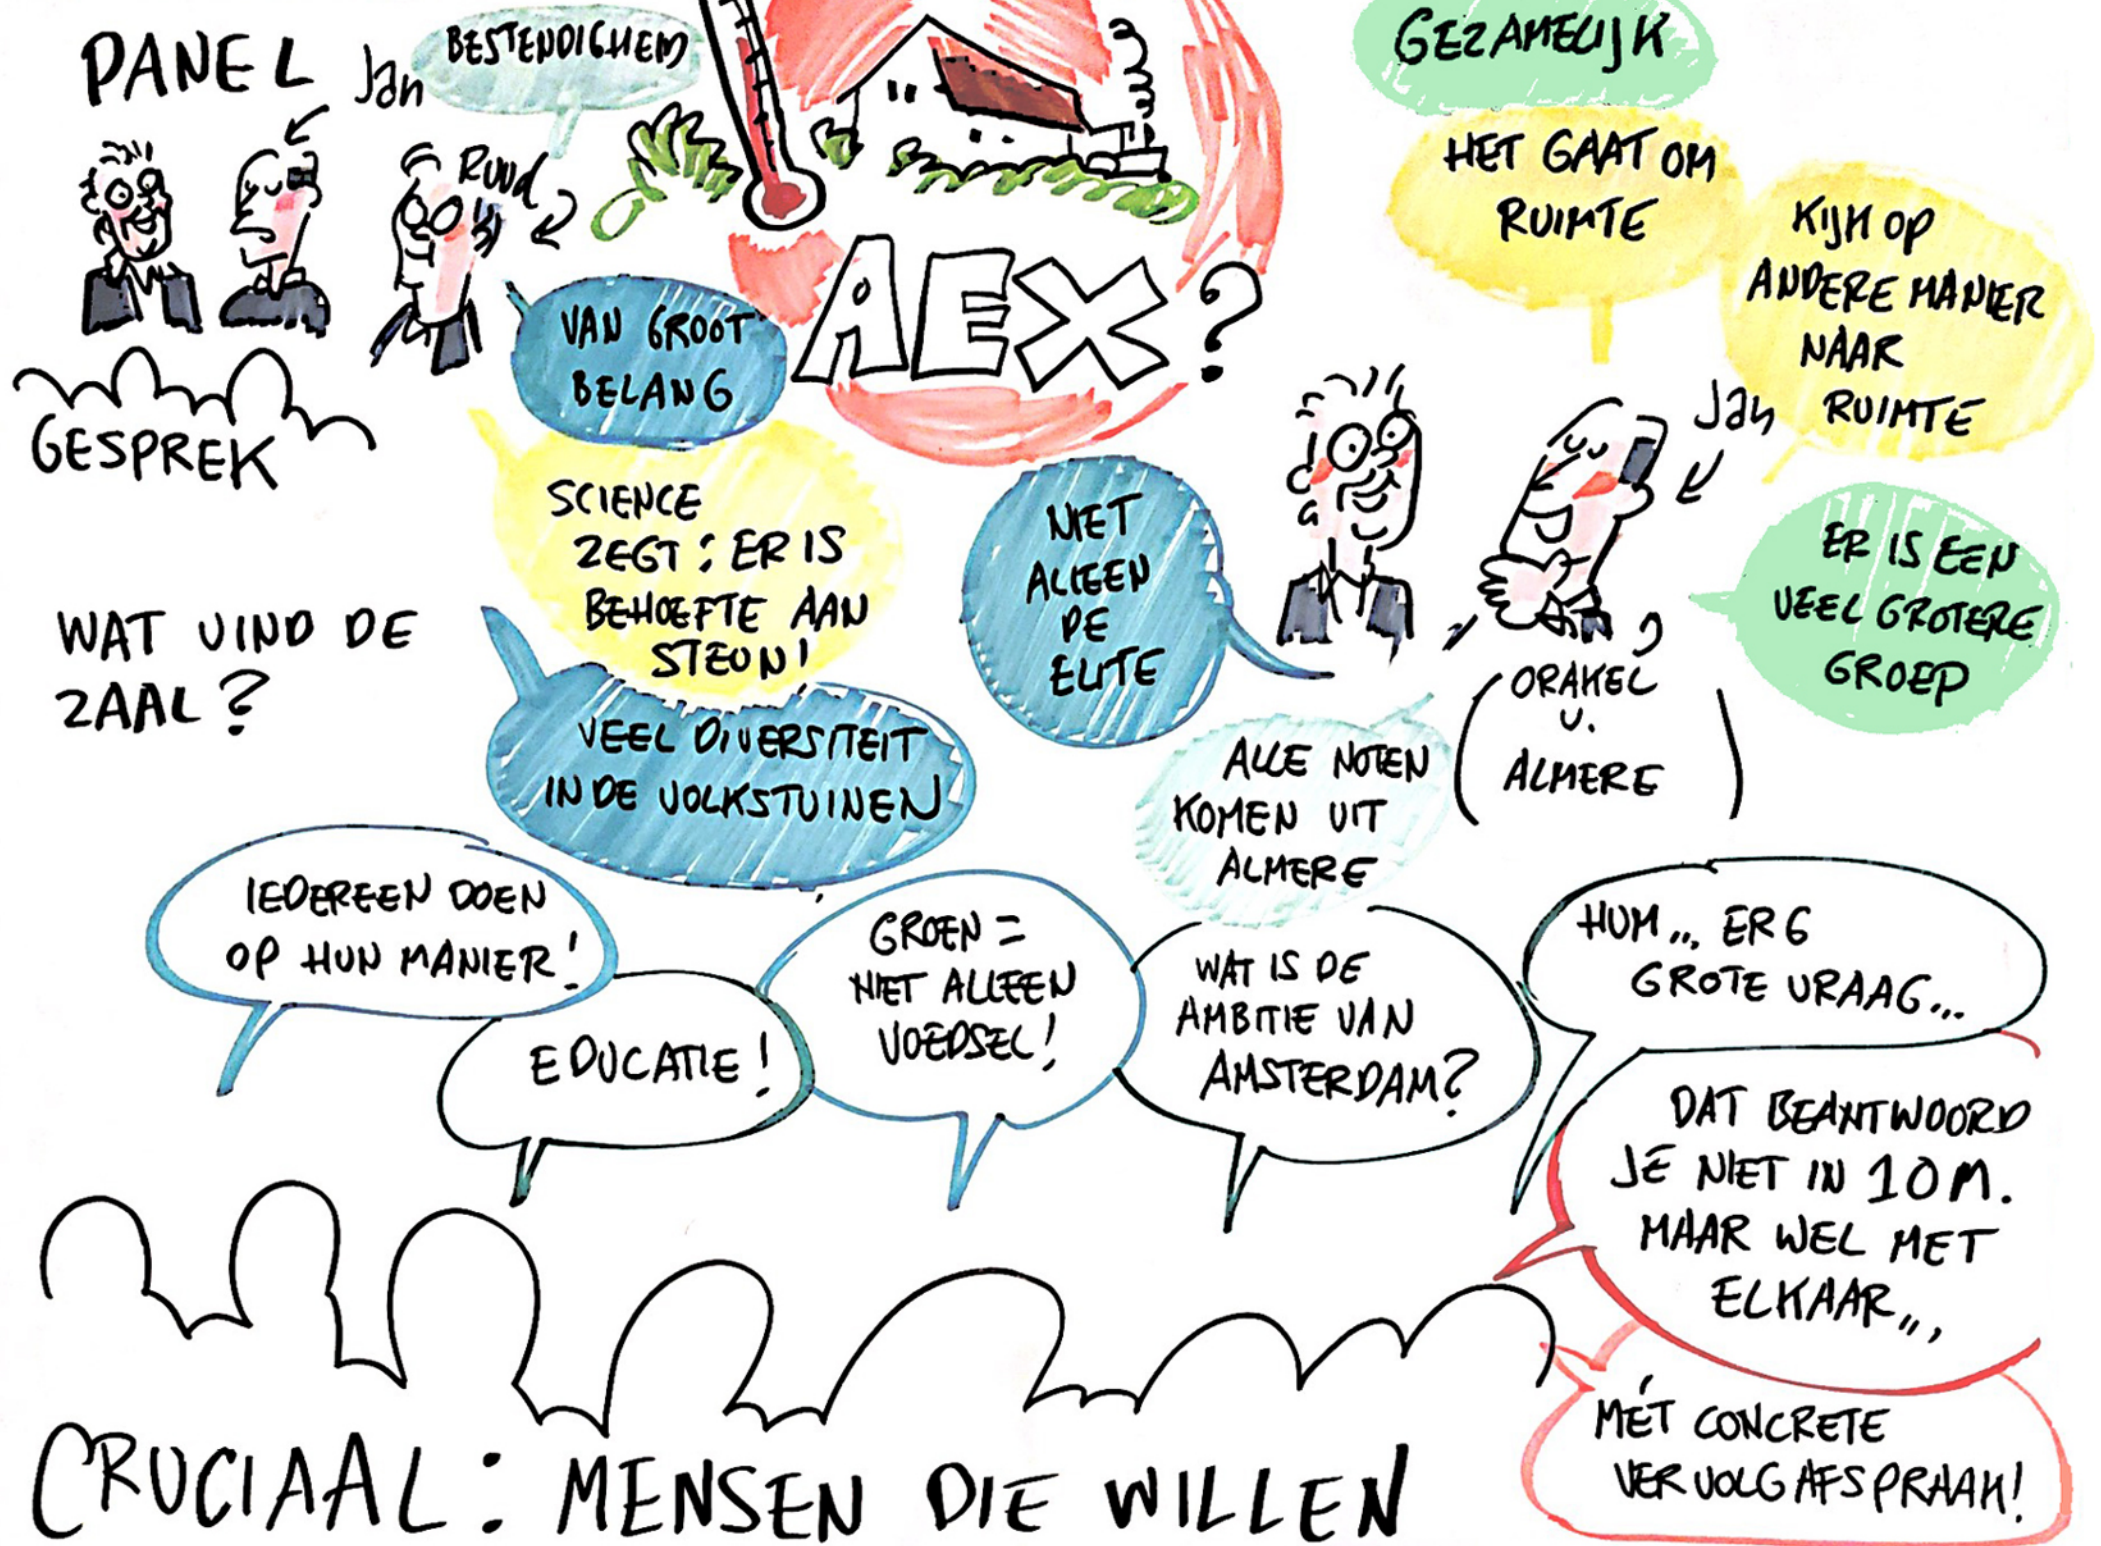 PANEL
Jan
BESTENDIGHEID
Ruud
GESPREK
WAT VIND DE
ZAAL?
AEX?
VAN GROOT
BELANG
SCIENCE
ZEGT: ER IS
BEHOEFTE AAN
STEUN!
VEEL DIVERSITEIT
IN DE VOLKSTUINEN
NIET
ALLEEN
DE
ELITE
GEZAMELIJK
HET GAAT OM
RUIMTE
KIJK OP
ANDERE MANIER
NAAR
RUIMTE
Jan
ER IS EEN
VEEL GROTERE
GROEP
ORAKEL
V.
ALMERE
ALLE NOTEN
KOMEN UIT
ALMERE
IEDEREEN DOEN
OP HUN MANIER!
EDUCATIE!
GROEN =
NIET ALLEEN
VOEDSEL!
WAT IS DE
AMBITIE VAN
AMSTERDAM?
HUM... ERG
GROTE VRAAG...
DAT BEANTWOORD
JE NIET IN 10 M.
MAAR WEL MET
ELKAAR...
MÉT CONCRETE
VERVOLGAFSPRAAK!
CRUCIAAL: MENSEN DIE WILLEN